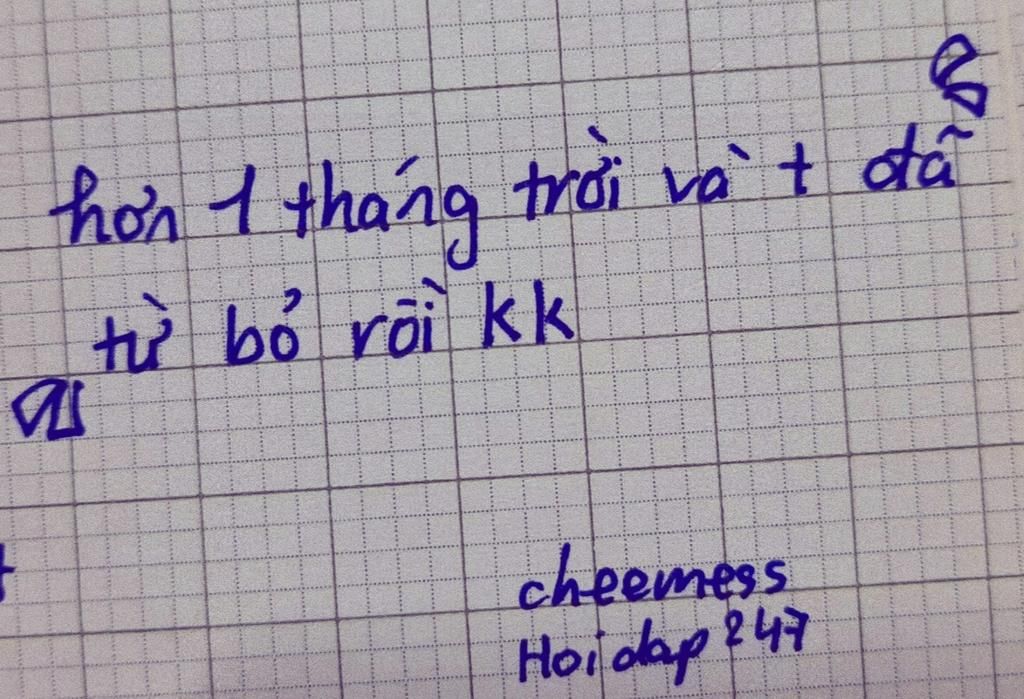 hơn 1 tháng trời và t đã
từ bỏ rồi kk
cheemess
Hoidap247